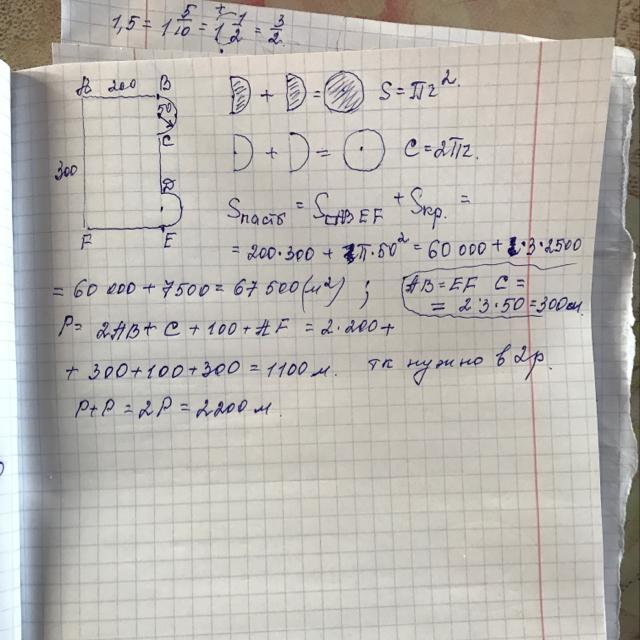 1,5 = 1 5/10 = 1 1/2 = 3/2.
A 200 B
50
C
300
D
F E
+ = S = πr².
+ = C = 2πr.
Sпасть = S□ABEF + Sкр. =
= 200·300 + π·50² = 60 000 + 3·2500
= 60 000 + 7500 = 67 500 (м²) ;
AB = EF C =
= 2·3·50 = 300м.
P = 2AB + C + 100 + AF = 2·200 +
+ 300 + 100 + 300 = 1100 м. тк нужно в 2р.
P+P = 2P = 2200 м.